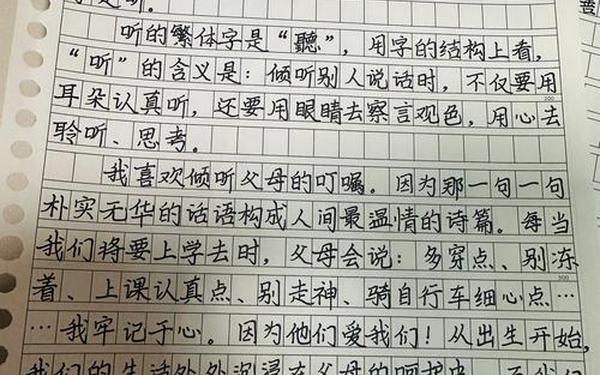 是听。
听的繁体字是“聽”，用字的结构上看，
“听”的含义是：倾听别人说话时，不仅要用
耳朵认真听，还要用眼睛去察言观色，用心去
聆听、思考。
我喜欢倾听父母的叮嘱。因为那一句一句
朴实无华的话语构成人间最温情的诗篇。每当
我们将要上学去时，父母会说：多穿点、别冻
着、上课认真点、别走神、骑自行车细心点…
…我牢记于心。因为他们爱我们！从出生开始，
我们的生活处处沉浸在父母的呵护中，